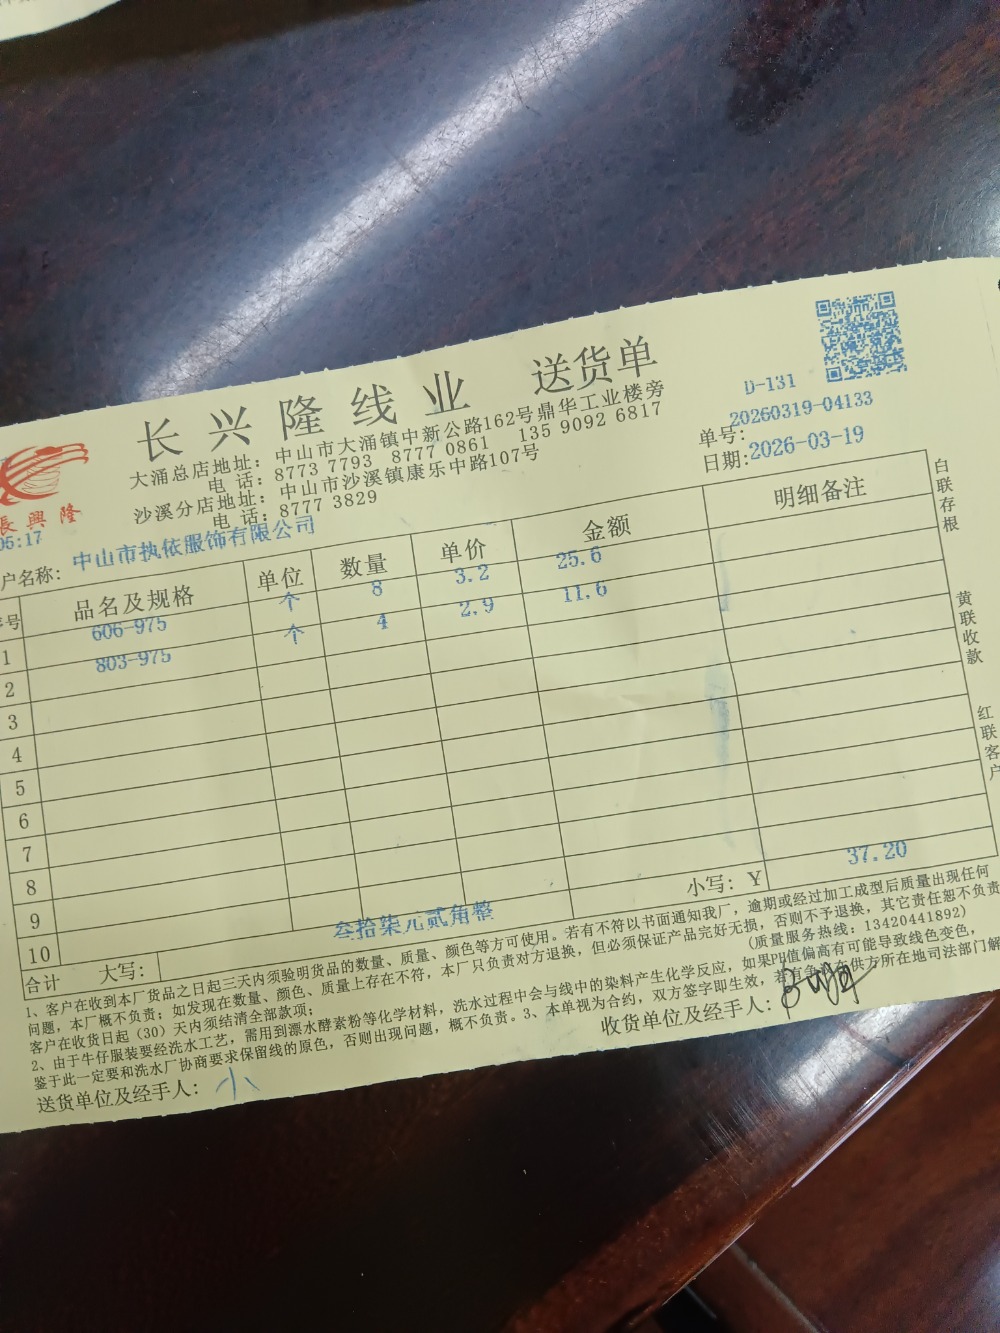 长兴隆线业 送货单
大涌总店地址：中山市大涌镇中新公路162号鼎华工业楼旁
电 话：8773 7793 8777 0861 135 9092 6817
沙溪分店地址：中山市沙溪镇康乐中路107号
电 话：8777 3829
D-131
单号：20260319-04133
日期：2026-03-19
長興隆
05:17
户名称：中山市执依服饰有限公司
号 品名及规格 单位 数量 单价 金额 明细备注
1 606-975 个 8 3.2 25.6
2 803-975 个 4 2.9 11.6
3
4
5
6
7
8
9
10
合计 大写：叁拾柒元贰角整 小写：￥ 37.20
1、客户在收到本厂货品之日起三天内须验明货品的数量、质量、颜色等方可使用。若有不符以书面通知我厂，逾期或经过加工成型后质量出现任何
问题，本厂概不负责；如发现在数量、颜色、质量上存在不符，本厂只负责对方退换，但必须保证产品完好无损，否则不予退换，其它责任恕不负责
客户在收货日起（30）天内须结清全部款项；
(质量服务热线：13420441892)
2、由于牛仔服装要经洗水工艺，需用到漂水酵素粉等化学材料，洗水过程中会与线中的染料产生化学反应，如果PH值偏高有可能导致线色变色，
鉴于此一定要和洗水厂协商要求保留线的原色，否则出现问题，概不负责。3、本单视为合约，双方签字即生效，若有争议在供方所在地司法部门解
送货单位及经手人：小
收货单位及经手人：
白联存根
黄联收款
红联客户